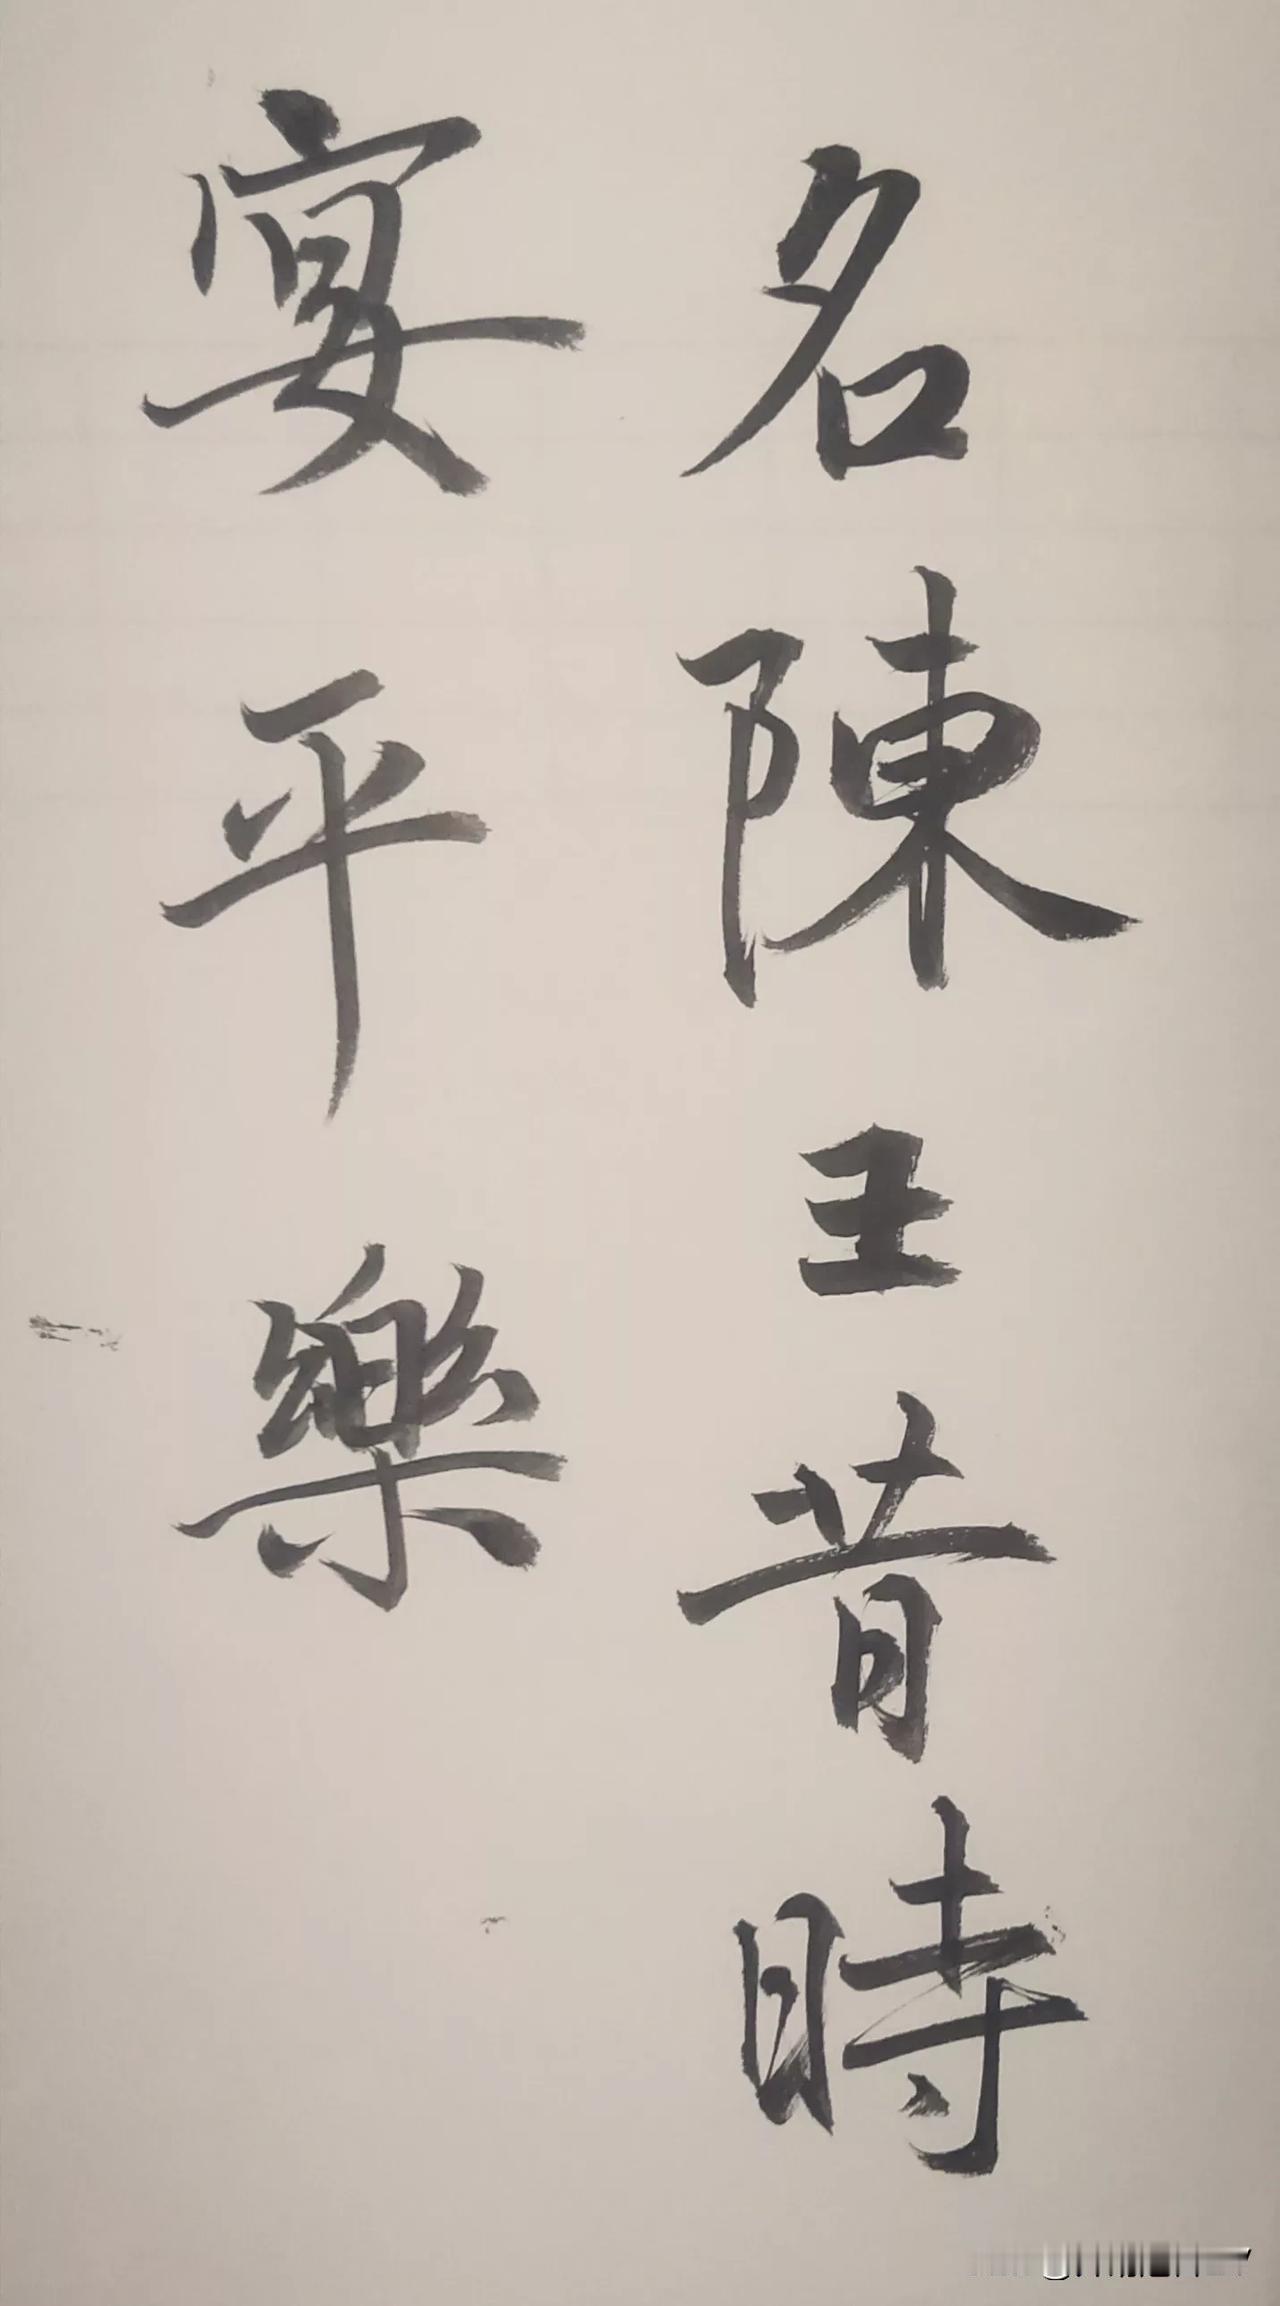 名陳王昔時
宴平樂